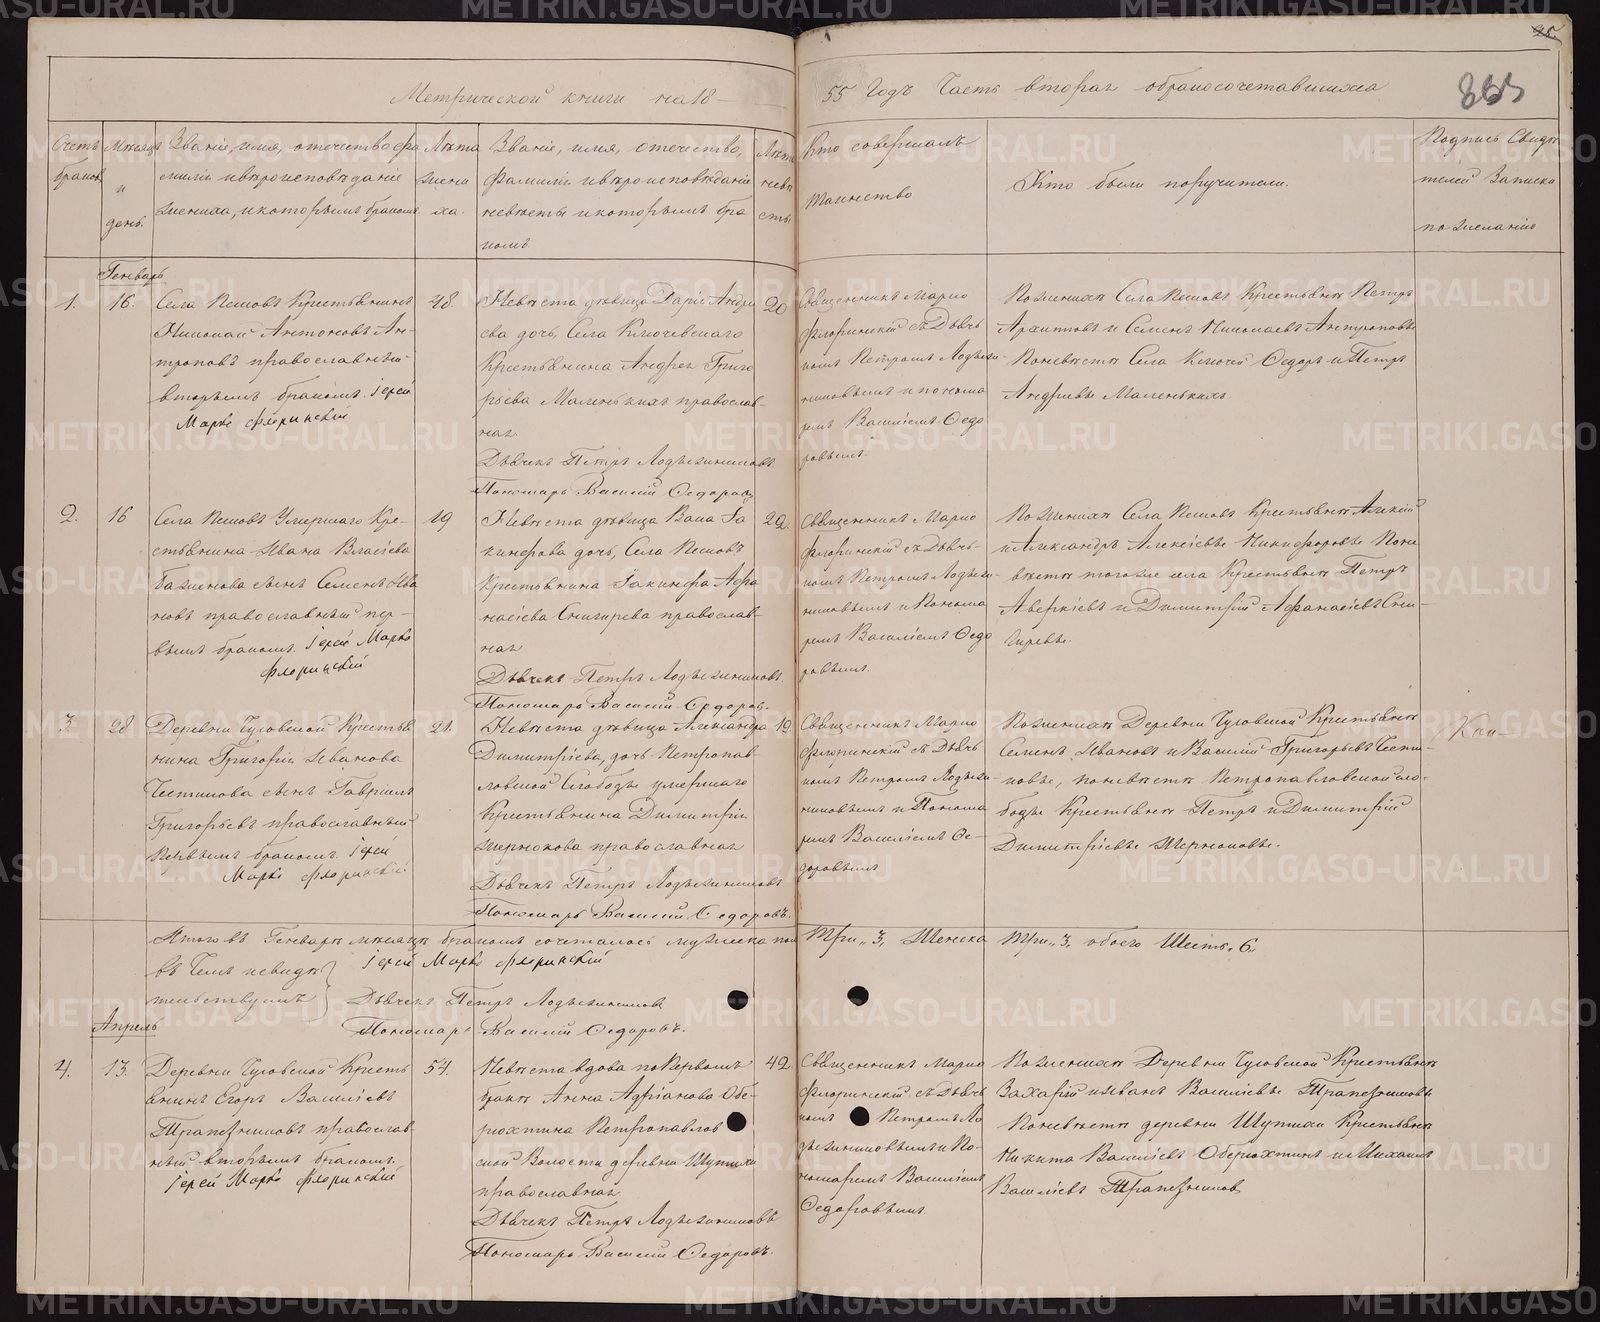 Метрической книги на 18
55 Годъ Часть вторая о бракосочетавшихся
Счетъ браковъ
Мѣсяцъ и день.
Званіе, имя, отечество, фа
миліи и вѣроисповѣданіе
жениха, и которымъ бракомъ.
Лѣта жениха.
Званіе, имя, отечество,
фамилія и вѣроисповѣданіе
невѣсты и которымъ бра
комъ.
Лѣта невѣсты
Кто совершалъ
таинство
Кто были поручители.
Подпись Свидѣ
телей Записки
по желанію
Генварь
1.
16.
Села Кешовъ Крестьянинъ
Николай Антоновъ Ан-
троповъ православный
вторымъ бракомъ. Іерей
Марко Флоринскій
48.
Невѣста дѣвица Дарія Андре
ева дочь, Села Ключевскаго
Крестьянина Андрея Григо
рьева Маленькихъ православ-
ная
Дьячекъ Петръ
Пономарь Василій Ѳедоровъ
20
Священникъ Марко
Флоринскій съ Дьяч
комъ Петромъ
и понома
ремъ Василіемъ Ѳедо
ровымъ.
По женихѣ Села Крестьяне Петръ
Архиповъ и Семенъ Николаевъ Антроповы
По невѣстѣ Села Ключей Ѳедоръ и Петръ
Андреевы Маленькихъ
2.
16
Села Умершаго Кре-
стьянина Ивана Власіева
сынъ Семенъ Ива
новъ православный пер-
вымъ бракомъ. Іерей Марко
Флоринскій
19
Невѣста дѣвица Іа
кинфова дочь, Села
Крестьянина Іакинфа Афа
насіева Снигирева православ-
ная
Дьячекъ Петръ
Пономарь Василій Ѳедоровъ.
22.
Священникъ Марко
Флоринскій съ Дьяч-
комъ Петромъ
и Понома
ремъ Василіемъ Ѳедо
ровымъ.
По женихѣ Села Крестьяне Алексій
и Александръ Алексіевы Никифоровы По не
вѣстѣ тогоже села Крестьяне Петръ
Аверкіевъ и Димитрій Афанасіевъ Сни-
гиревы.
3.
28
Деревни Крестья
нина Григорія Иванова
сынъ Гавріилъ
Григорьевъ православный
Первымъ бракомъ. Іерей
Марко Флоринскій
21.
Невѣста дѣвица Александра
Димитріева, дочь Петропав-
ловской Слободы умершаго
Крестьянина Димитрія
православная
Дьячекъ Петръ
Пономарь Василій Ѳедоровъ.
19
Священникъ Марко
Флоринскій съ Дьяч
комъ Петромъ
и Понома
ремъ Василіемъ Ѳе-
доровымъ
По женихѣ Деревни Крестьяне
Семенъ Ивановъ и Василій Григорьевъ
по невѣстѣ Петропавловской сло-
боды Крестьяне Петръ и Димитрій
Димитріевы
Итого въ Генварѣ мѣсяцѣ бракомъ сочеталось мужеска пола
Три „3, Женска Три „3. обоего Шесть „6.
Въ чемъ и свидѣ
тельствуемъ
Іерей Марко Флоринскій
Дьячекъ Петръ
Пономарь Василій Ѳедоровъ.
Апрель
4.
13.
Деревни Кресть
янинъ Егоръ Василіевъ
Трапезниковъ православ
ный вторымъ бракомъ
Іерей Марко Флоринскій
54.
Невѣста вдова по Первомъ
бракѣ Анна Адріанова Обе-
рюхтина Петропавлов
ской Волости деревни Шутихи
православная
Дьячекъ Петръ
Пономарь Василій Ѳедоровъ.
42
Священникъ Марко
Флоринскій съ Дьяч
комъ Петромъ
и По-
номаремъ Василіемъ
Ѳедоровымъ
По женихѣ Деревни Крестьяне
Захарій и Иванъ Василіевы Трапезниковы
По невѣстѣ деревни Шутихи Крестьяне
Никита Василіевъ Оберюхтинъ и Михаилъ
Василіевъ Трапезниковъ
METRIKI.GASO-URAL.RU